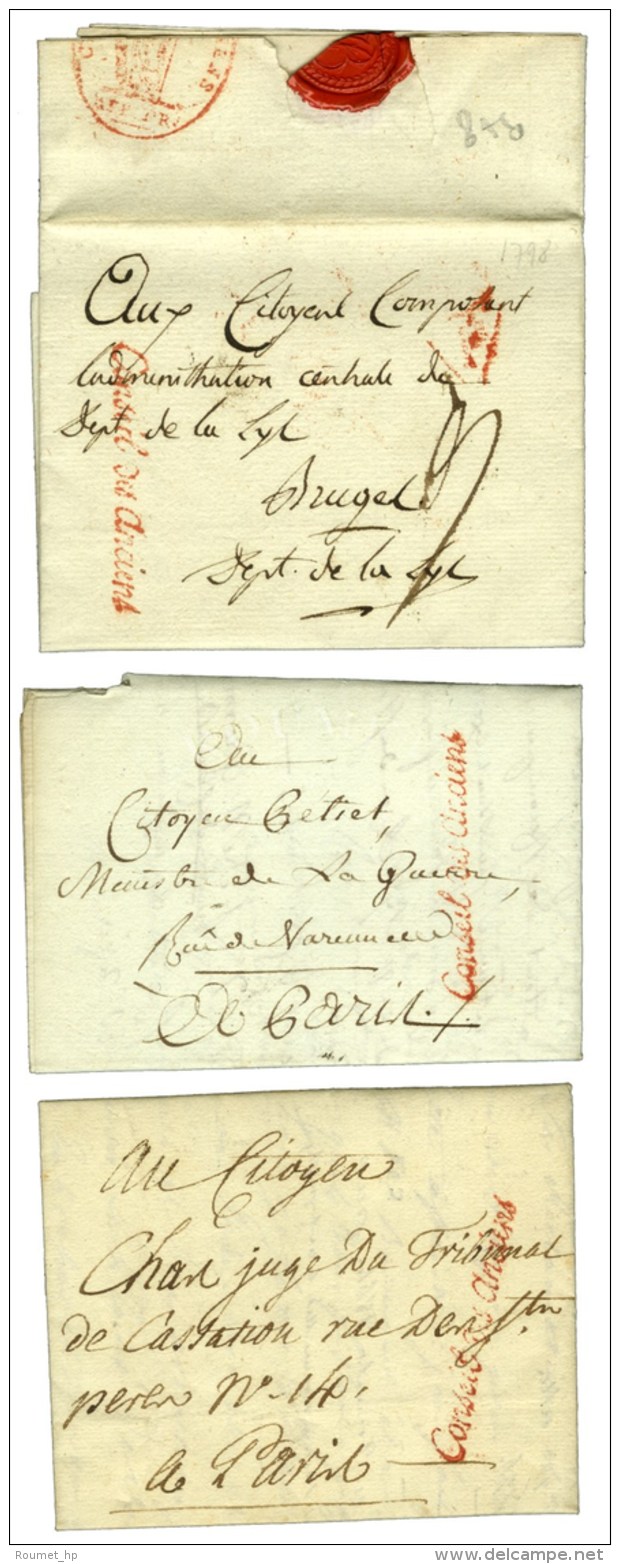 878
1798
Aux Citoyens Composant
Ladministration centrale du
Dept. de la Lys
Bruges
Dept. de la Lys
Conseil des Anciens
Au
Citoyen Petiet,
Ministre de La Guerre,
Rue de Varennes
A Paris.
Conseil des Anciens
Au Citoyen
juge Du Tribunal
de Cassation rue Des Sts
peres No. 14.
a Paris
Conseil des Anciens
Roumet_hp
delcampe.net